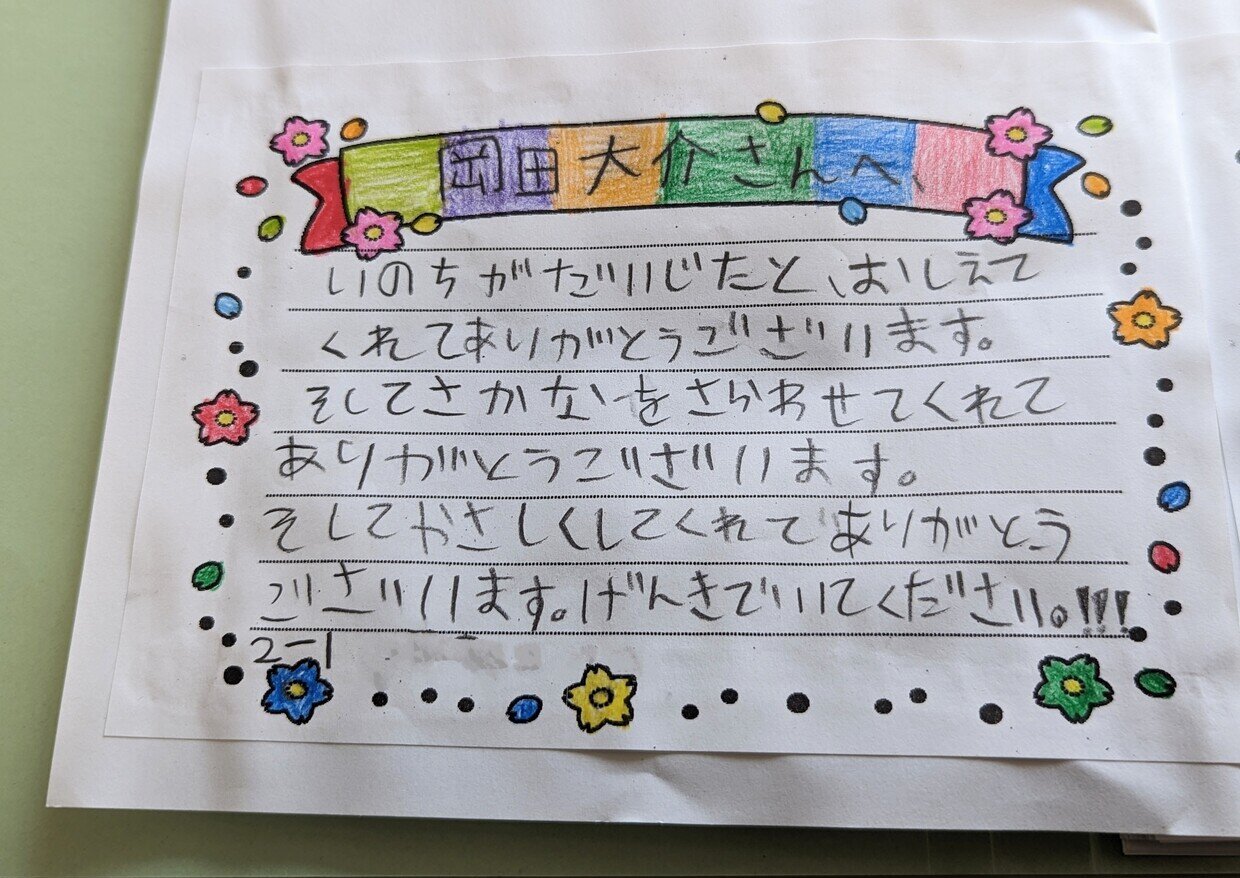 岡田大介さんへ、
いのちがだいじたと、おしえて
くれてありがとうございます。
そしてさかなをさらわせてくれて
ありがとうございます。
そしてやさしくしてくれてありがとう
ございます。げんきでいてください。!!!
2-1